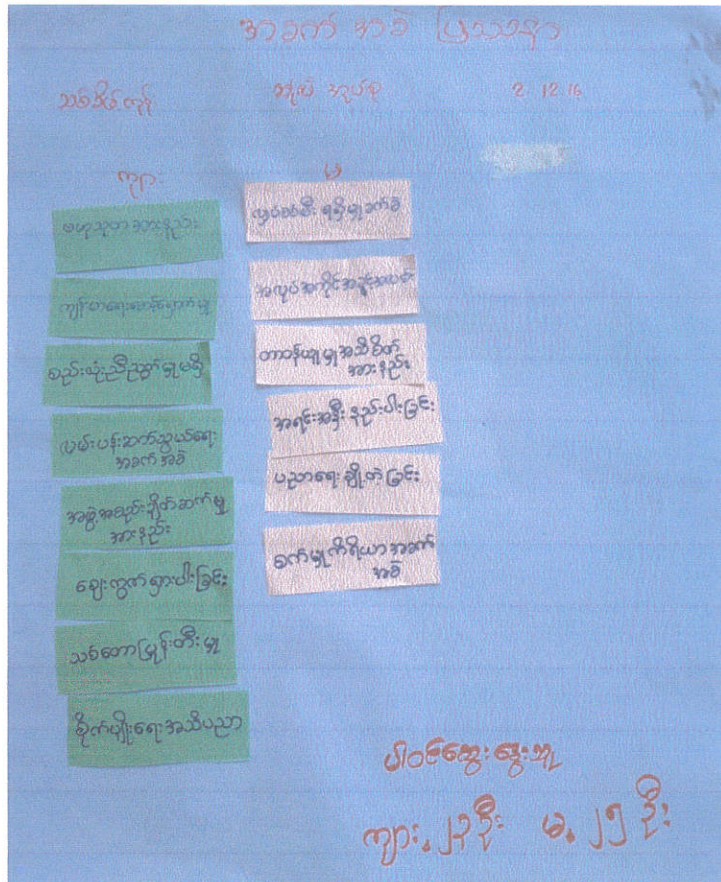 အခက် အခဲ ပြဿနာ
သစ်ဆိမ့်ကုန်း
2.12.16
ကျား
မ
ဗဟုသုတ အားနည်း
ကျန်းမာရေးစောင့်ရှောက်မှု
စည်းလုံးညီညွတ်မှု မရှိ
လမ်းပန်းဆက်သွယ်ရေး
အခက် အခဲ
အဖွဲ့အစည်းချိတ်ဆက်မှု
အားနည်း
ဈေးကွက်ရှားပါးခြင်း
သစ်တောပြုန်းတီးမှု
စိုက်ပျိုးရေးအသိပညာ
လျှပ်စစ်မီး ရရှိမှုခက်ခဲ
အလုပ်အကိုင်အခွင့်အလမ်း
တာဝန်ယူမှုအသိစိတ်
အားနည်း
အရင်းအနှီး နည်းပါးခြင်း
ပညာရေး ချို့တဲ့ခြင်း
စက်မှုကိရိယာအခက်
အခဲ
ပါဝင်ဆွေးနွေးသူ
ကျား. ၂၃ ဦး မ. ၂၅ ဦး